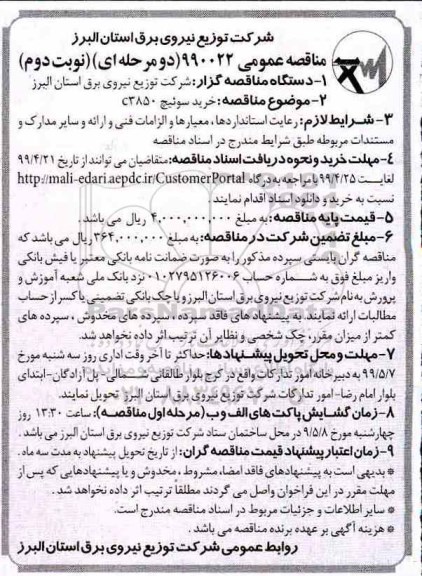 شرکت توزیع نیروی برق استان البرز
مناقصه عمومی ۹۹۰۰۲۲ (دو مرحله ای) (نوبت دوم)
۱-دستگاه مناقصه گزار: شرکت توزیع نیروی برق استان البرز
۲-موضوع مناقصه: خرید سوئیچ c۳۸۵۰
۳- شرایط لازم: رعایت استانداردها، معیارها و الزامات فنی و ارائه و سایر مدارک و
مستندات مربوطه طبق شرایط مندرج در اسناد مناقصه
۴-مهلت خرید و نحوه دریافت اسناد مناقصه: متقاضیان می توانند از تاریخ ۹۹/۴/۲۱
لغایت ۹۹/۴/۲۵ با مراجعه به درگاه http://mali-edari.aepdc.ir/CustomerPortal
نسبت به خرید و دانلود اسناد اقدام نمایند
۵- قیمت پایه مناقصه: به مبلغ ۴,۰۰۰,۰۰۰,۰۰۰ ریال می باشد.
۶-مبلغ تضمین شرکت در مناقصه: به مبلغ ۳۶۴,۰۰۰,۰۰۰ ریال می باشد که
مناقصه گران بایستی سپرده مذکور را به صورت ضمانت نامه بانکی معتبر یا فیش بانکی
واریز مبلغ فوق به شماره حساب ۰۱۰۲۷۹۵۱۲۶۰۰۶ نزد بانک ملی شعبه آموزش و
پرورش به نام شرکت توزیع نیروی برق استان البرز و یا چک بانکی تضمینی یا کسر از حساب
مطالبات ارائه نمایند. به پیشنهاد های فاقد سپرده، سپرده های مخدوش، سپرده های
کمتر از میزان مقرر، چک شخصی و نظایر آن ترتیب اثر داده نخواهد شد.
۷- مهلت و محل تحویل پیشنهادها: حداکثر تا آخر وقت اداری روز سه شنبه مورخ
۹۹/۵/۷ به دبیرخانه امور تدارکات واقع در کرج بلوار طالقانی شمالی- پل آزادگان- ابتدای
بلوار امام رضا- امور تدارکات شرکت توزیع نیروی برق استان البرز تحویل نمایند.
۸-زمان گشایش پاکت های الف و ب (مرحله اول مناقصه): ساعت ۱۳:۳۰ روز
چهارشنبه مورخ ۹/۵/۸ در محل ساختمان ستاد شرکت توزیع نیروی برق استان البرز می باشد.
۹-زمان اعتبار پیشنهاد قیمت مناقصه گران: از تاریخ تحویل پیشنهاد به مدت سه ماه.
* بدیهی است به پیشنهادهای فاقد امضا، مشروط، مخدوش و یا پیشنهادهایی که پس از
مهلت مقرر در این فراخوان واصل می گردند مطلقاً ترتیب اثر داده نخواهد شد.
* سایر اطلاعات و جزئیات مربوط در اسناد مناقصه مندرج است.
* هزینه آگهی بر عهده برنده مناقصه می باشد.
روابط عمومی شرکت توزیع نیروی برق استان البرز